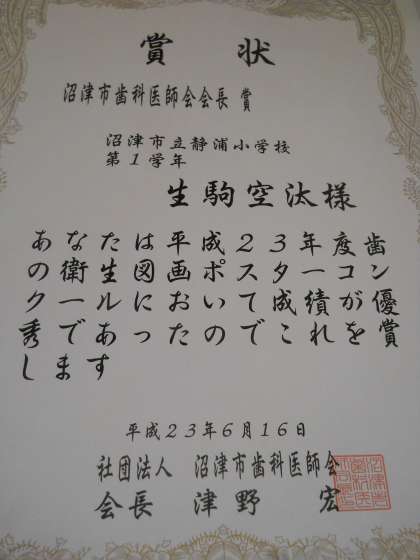 賞状
沼津市歯科医師会会長 賞
沼津市立静浦小学校
第1学年
生駒空汰様
あなたは平成23年度歯
の衛生図画ポスターコン
クールにおいて成績が優
秀であったのでこれを賞
します
平成23年6月16日
社団法人 沼津市歯科医師会
会長 津野 宏